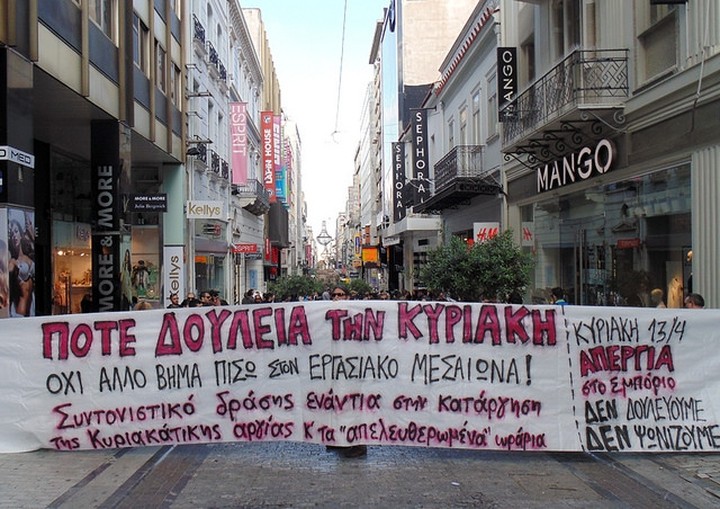 MORE & MORE
MORE & MORE
Kellys
Kellys
ESPRIT
ESPRIT
SEPHORA
SEPHORA
H&M
MANGO
MANGO
ΠΟΤΕ ΔΟΥΛΕΙΑ ΤηΝ ΚΥΡΙΑΚΗ
ΟΧΙ ΑΛΛΟ ΒΗΜΑ ΠΙΣΩ ΣΤΟΝ ΕΡΓΑΣΙΑΚΟ ΜΕΣΑΙΩΝΑ!
Συντονιστικό δράσης ενάντια στην κατάργηση
της Κυριακάτικης αργίας κ' τα "απελευθερωμένα" ωράρια
ΚΥΡΙΑΚΗ 13/4
ΑΠΕΡΓΙΑ
στο Εμπόριο
ΔΕΝ ΔΟΥΛΕΥΟΥΜΕ
ΔΕΝ ΨΩΝΙΖΟΥΜΕ